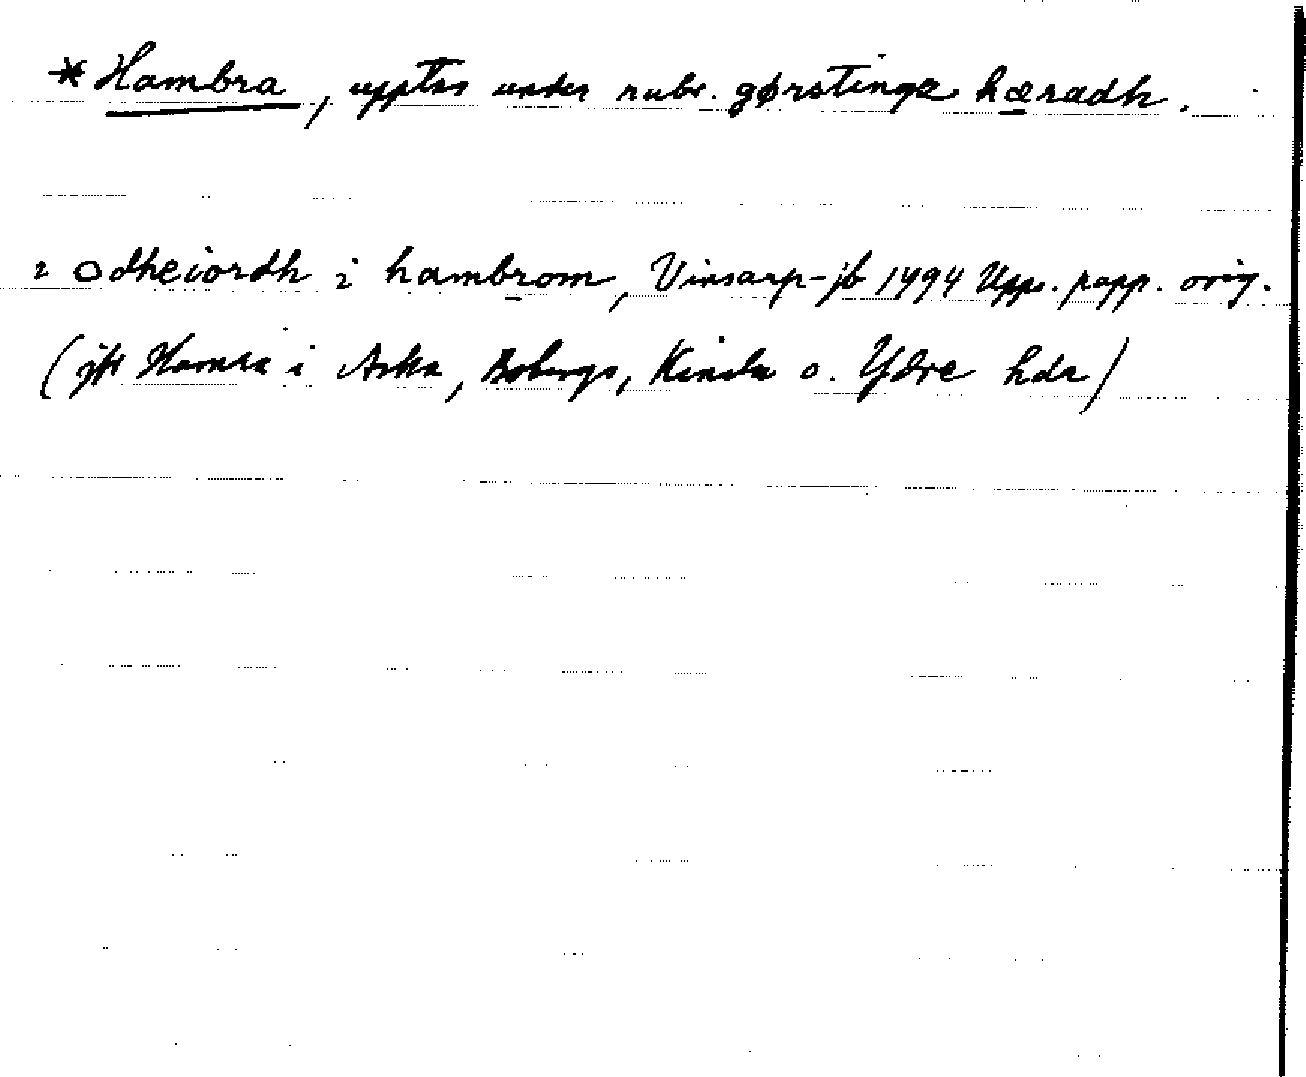 *Hambra, upptas under rubr. gørstinga hæradh.
i Odheiordh i hambrom, Vinsarp-jb 1494 Upps. papp. orig.
(jfr Hamra i Aska, Bobergs, Kinda o. Ydre hdr)